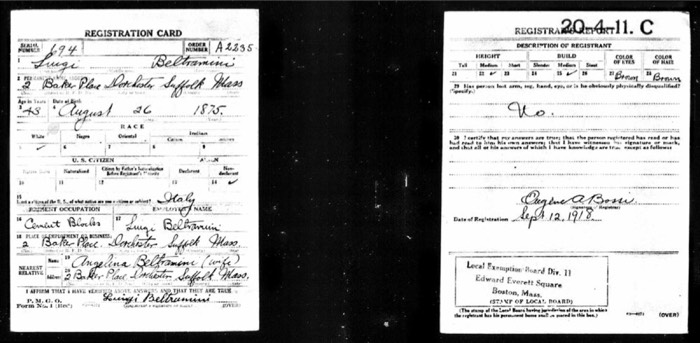 REGISTRATION CARD
SERIAL NUMBER 694 ORDER NUMBER A2235
1 Luigi Beltramini
2 PERMANENT HOME ADDRESS
2 Baker Place Dorchester Suffolk Mass
Age in Years Date of Birth
3 43 4 August 26 1875.
RACE
White Negro Oriental Indian
Citizen
5 ✓ 6 7 8 9
U. S. CITIZEN ALIEN
Native Born Naturalized Citizen by Father's Naturalization Before Registrant's Majority Declarant Non-declarant
10 11 12 13 14 ✓
15
If not a citizen of the U. S., of what nation are you a citizen or subject? Italy
PRESENT OCCUPATION EMPLOYER'S NAME
16 Cement Blocks 17 Luigi Beltramini
18 PLACE OF EMPLOYMENT OR BUSINESS
2 Baker Place. Dorchester Suffolk Mass.
NEAREST RELATIVE
Name 19 Angelina Beltramini (wife)
Address 20 2 Baker Place Dorchester Suffolk Mass.
I AFFIRM THAT I HAVE VERIFIED ABOVE ANSWERS AND THAT THEY ARE TRUE
P. M. G. O.
Form No. 1 (Red) Luigi Beltramini (OVER)
REGISTRAR'S REPORT 20-4-11. C
DESCRIPTION OF REGISTRANT
HEIGHT BUILD COLOR OF EYES COLOR OF HAIR
Tall Medium Short Slender Medium Stout
21 22 ✓ 23 24 25 ✓ 26 27 Brown 28 Brown
29 Has person lost arm, leg, hand, eye, or is he obviously physically disqualified?
(Specify.)
No.
30 I certify that my answers are true; that the person registered has read or has
had read to him his own answers; that I have witnessed his signature or mark,
and that all of his answers of which I have knowledge are true, except as follows:
Eugene A. Bossi
(Signature of Registrar)
Date of Registration Sept. 12, 1918.
Local Exemption Board Div. 11
Edward Everett Square
Boston, Mass.
(STAMP OF LOCAL BOARD)
(The stamp of the Local Board having jurisdiction of the area in which
the registrant has his permanent home shall be placed in this box.)
(OVER)